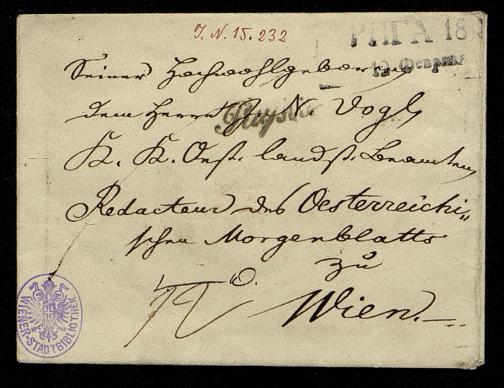 I. N. 15.232
РИГА 18
12 Февраля
Seiner Hochwohlgeboren
dem Herrn J. N. Vogl,
K. K. Oest. landst. Beamten
Redacteur des Oesterreichi-
schen Morgenblatts
zu
Wien.
WIENER-STADTBIBLIOTHEK